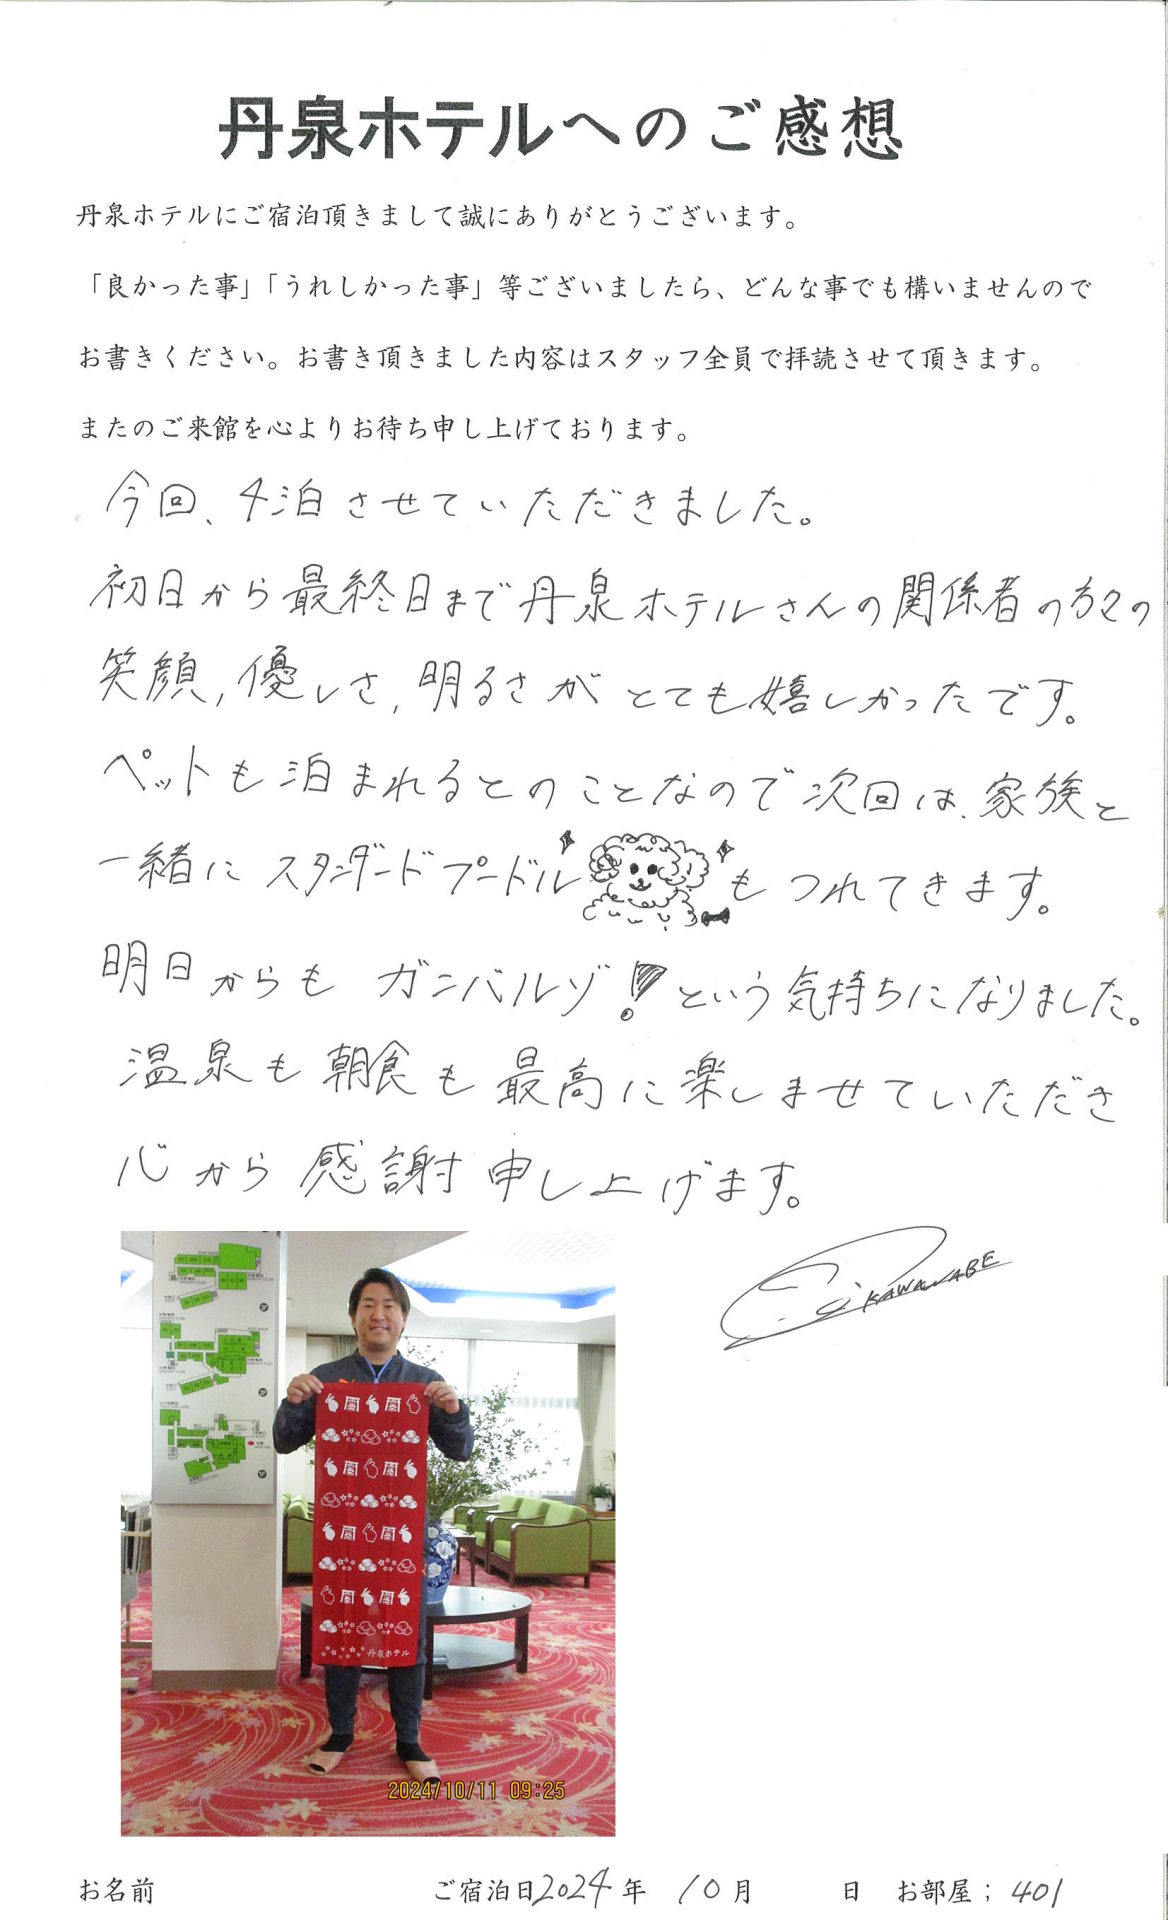 丹泉ホテルへのご感想
丹泉ホテルにご宿泊頂きまして誠にありがとうございます。
「良かった事」「うれしかった事」等ございましたら、どんな事でも構いませんので
お書きください。お書き頂きました内容はスタッフ全員で拝読させて頂きます。
またのご来館を心よりお待ち申し上げております。
今回、4泊させていただきました。
初日から最終日まで丹泉ホテルさんの関係者の方々の
笑顔,優しさ,明るさがとても嬉しかったです。
ペットも泊まれるとのことなので次回は、家族と
一緒にスタンダードプードルもつれてきます。
明日からもガンバルゾ!という気持ちになりました。
温泉も朝食も最高に楽しませていただき
心から感謝申し上げます。
KAWANABE
丹泉ホテル
2024/10/11 09:25
お名前 ご宿泊日2024年 10月 日 お部屋; 401